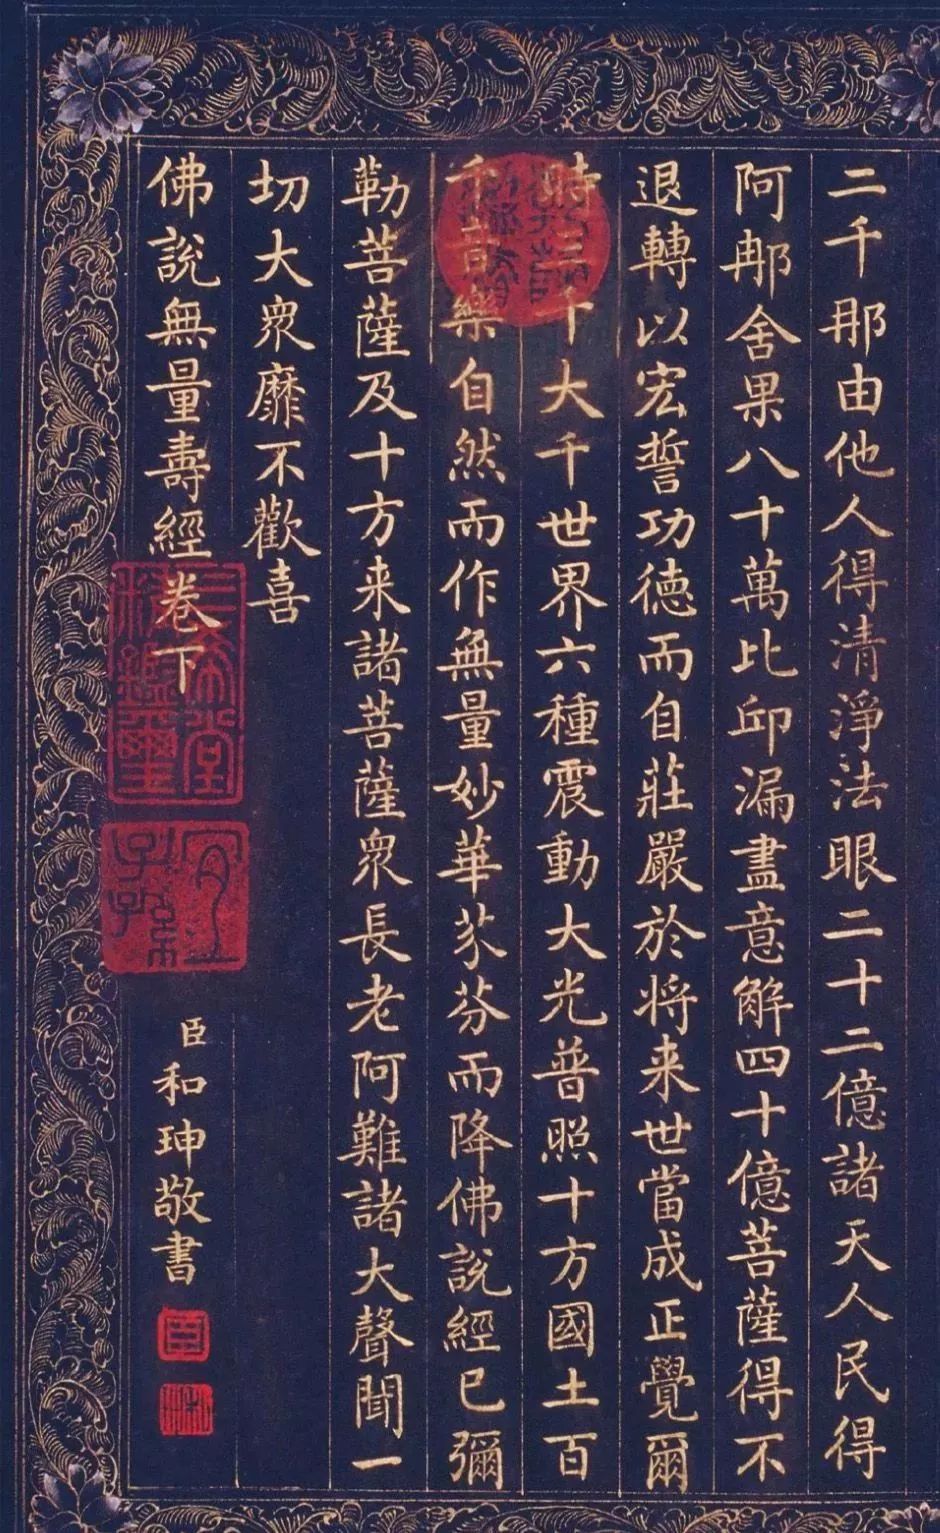 二千那由他人得清淨法眼二十二億諸天人民得
阿那舍果八十萬比邱漏盡意解四十億菩薩得不
退轉以宏誓功德而自莊嚴於將来世當成正覺爾
時三千大千世界六種震動大光普照十方國土百
千音樂自然而作無量妙華芬芬而降佛説經已彌
勒菩薩及十方来諸菩薩眾長老阿難諸大聲聞一
切大眾靡不歡喜
佛説無量壽經卷下
臣和珅敬書
三希堂精鑑璽
宜子孫